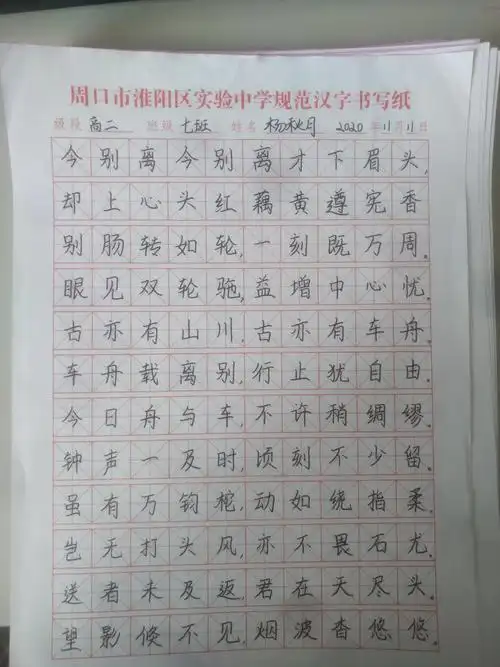 周口市淮阳区实验中学规范汉字书写纸
级段 高二 班级 七班 姓名 杨秋月 2020年11月11日
今别离今别离才下眉头,
却上心头红藕黄遵宪香
别肠转如轮,一刻既万周.
眼见双轮驰,益增中心忧.
古亦有山川,古亦有车舟
车舟载离别,行止犹自由.
今日舟与车,不许稍绸缪.
钟声一及时,顷刻不少留.
虽有万钧柁,动如绕指柔.
岂无打头风,亦不畏石尤.
送者未及返,君在天尽头.
望影倏不见,烟波杳悠悠.